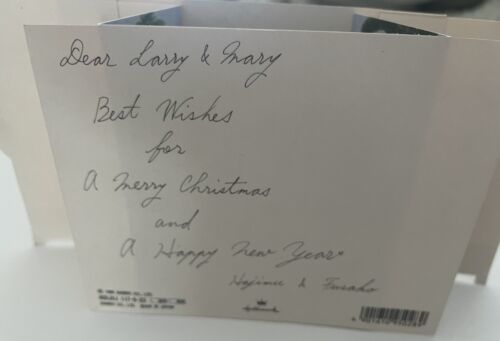 Dear Larry & Mary
Best Wishes
for
A Merry Christmas
and
A Happy New Year
Hajime & Fusako
Hallmark